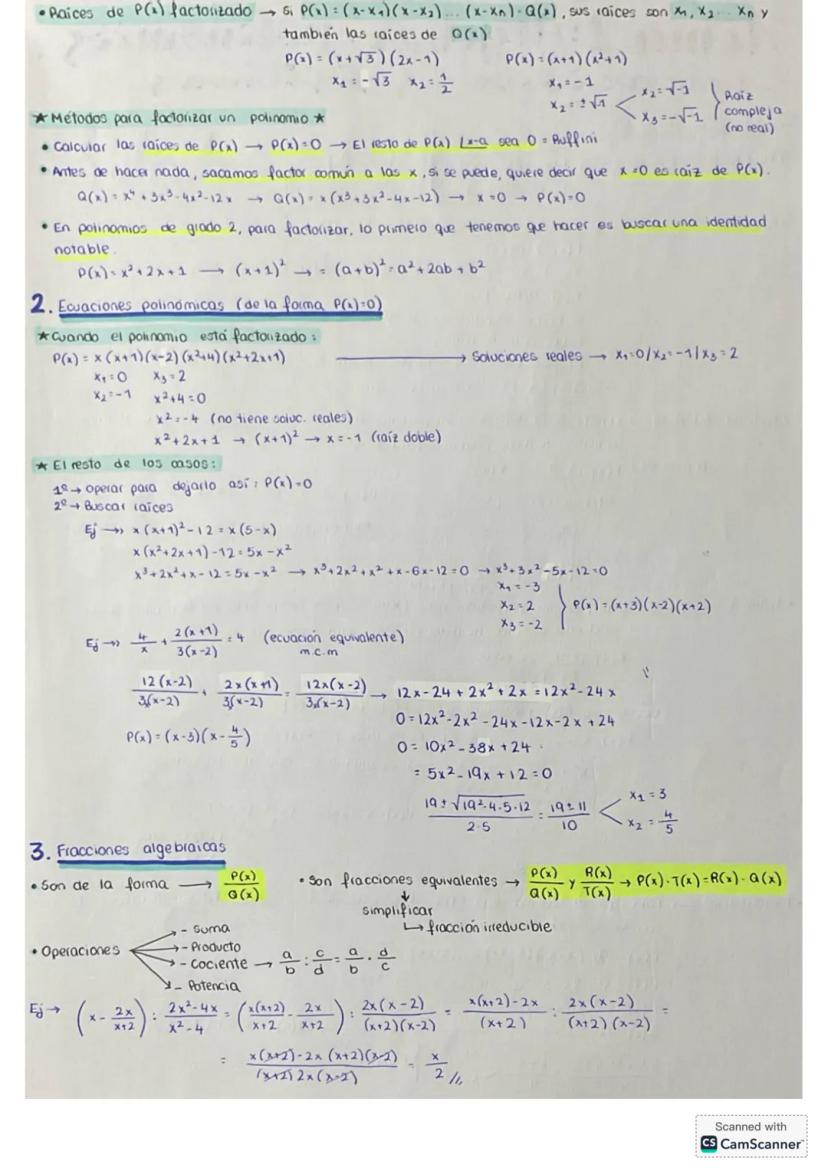 • Raíces de P(x) factorizado → Si P(x) = (x-x₁)(x-x₂)... (x-xₙ)·Q(x), sus raíces son x₁, x₂... xₙ y
también las raíces de Q(x)
P(x) = (x+√3)(2x-1) P(x) = (x+1)(x²+1)
x₁ = -√3 x₂ = 1/2 x₁ = -1
x₂ = ±√-1 x₂ = √-1 x₃ = -√-1 Raíz compleja (no real)
★ Métodos para factorizar un polinomio ★
• Calcular las raíces de P(x) → P(x)=0 → El resto de P(x) |x-a sea 0 = Ruffini
• Antes de hacer nada, sacamos factor común a las x, si se puede, quiere decir que x=0 es raíz de P(x).
Q(x) = x⁴ + 3x³ - 4x² - 12x → Q(x) = x(x³+3x²-4x-12) → x=0 → P(x)=0
• En polinomios de grado 2, para factorizar, lo primero que tenemos que hacer es buscar una identidad
notable.
P(x) = x² + 2x + 1 → (x+1)² → = (a+b)² = a² + 2ab + b²
2. Ecuaciones polinómicas (de la forma P(x)=0)
★ Cuando el polinomio está factorizado:
P(x) = x(x+1)(x-2)(x²+4)(x²+2x+1) → Soluciones reales → x₁=0 / x₂=-1 / x₃=2
x₁=0 x₃=2
x₂=-1 x²+4=0
x²=-4 (no tiene soluc. reales)
x²+2x+1 → (x+1)² → x=-1 (raíz doble)
★ El resto de los casos:
1º → Operar para dejarlo así: P(x)=0
2º → Buscar raíces
Ej →> x(x+1)² - 12 = x(5-x)
x(x²+2x+1) - 12 = 5x - x²
x³+2x²+x-12 = 5x-x² → x³+2x²+x²+x-6x-12=0 → x³+3x²-5x-12=0
x₁=-3
x₂=2 P(x) = (x+3)(x-2)(x+2)
x₃=-2
Ej →> 4/x + 2(x+1)/3(x-2) = 4 (ecuación equivalente)
m.c.m
12(x-2)/3x(x-2) + 2x(x+1)/3(x-2) = 12x(x-2)/3x(x-2) → 12x-24+2x²+2x = 12x²-24x
0 = 12x²-2x²-24x-12x-2x+24
P(x) = (x-3)(x-4/5)
0 = 10x²-38x+24
= 5x²-19x+12=0
19±√19²-4·5·12 / 2·5 = 19±11 / 10 x₁=3 x₂=4/5
3. Fracciones algebraicas
• Son de la forma → P(x)/Q(x) • Son fracciones equivalentes → P(x)/Q(x) y R(x)/T(x) → P(x)·T(x)=R(x)·Q(x)
simplificar
↳ fracción irreducible
• Operaciones
- Suma
- Producto
- Cociente → a/b : c/d = a/b · d/c
- Potencia
Ej → (x - 2x/x+2) : 2x²-4x/x²-4 = (x(x+2)/x+2 - 2x/x+2) : 2x(x-2)/(x+2)(x-2) = x(x+2)-2x/(x+2) : 2x(x-2)/(x+2)(x-2) =
= x(x+2)-2x(x+2)(x-2)/(x+2)2x(x-2) = x/2 //
Scanned with
CS CamScanner